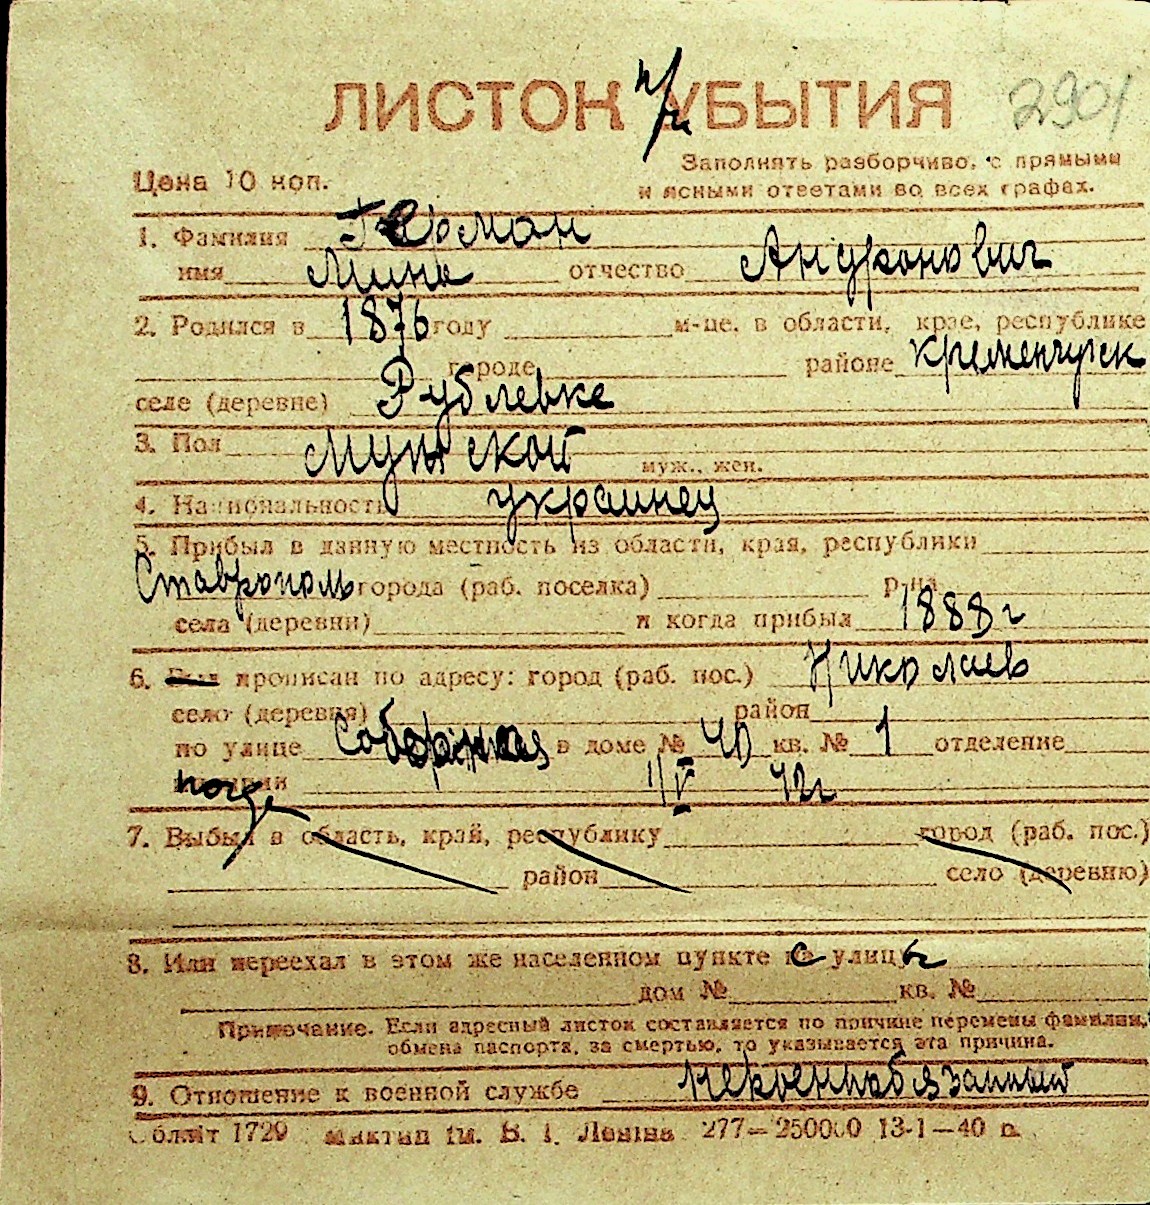 ЛИСТОК УБЫТИЯ 2901
Заполнять разборчиво, с прямыми
и ясными ответами во всех графах.
Цена 10 коп.
1. Фамилия Герман
имя Мина отчество Андронович
2. Родился в 1876 году м-це, в области, крае, республике
городе районе Кременчугск
селе (деревне) Рублевке
3. Пол Мужской муж., жен.
4. Национальность украинец
5. Прибыл в данную местность из области, края, республики
Ставрополь города (раб. поселка) р-на
села (деревни) и когда прибыл 1888 г
6. прописан по адресу: город (раб. пос.) Николаев
село (деревня) район
по улице Соборная в доме № 40 кв. № 1 отделение
1/V 42г
7. Выбыл в область, край, республику город (раб. пос.)
район село (деревню)
8. Или переехал в этом же населенном пункте с улицы
дом № кв. №
Примечание. Если адресный листок составляется по причине перемены фамилии,
обмена паспорта, за смертью, то указывается эта причина.
9. Отношение к военной службе невоеннобязанный
Обліт 1729 ім. В. І. Леніна 277—250000 13-1—40 р.